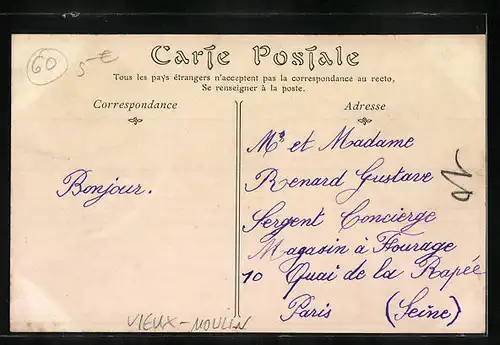 60
5 €
Carte Postale
Tous les pays étrangers n'acceptent pas la correspondance au recto,
Se renseigner à la poste.
Correspondance
Adresse
Bonjour.
Mr et Madame
Renard Gustave
Sergent Concierge
Magasin à Fourage
10 Quai de la Rapée
Paris (Seine)
10
VIEUX-MOULIN